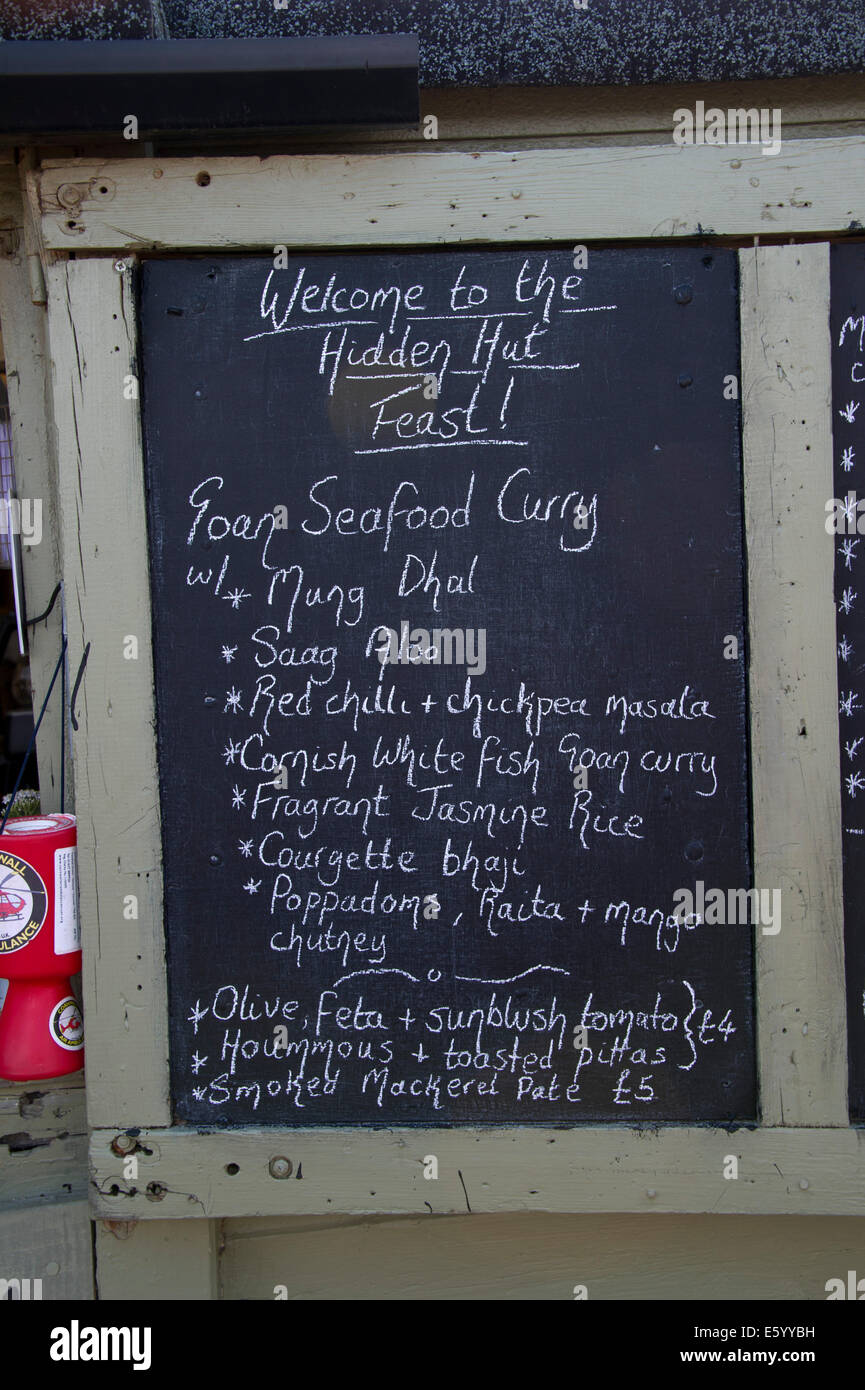 Welcome to the
Hidden Hut
Feast!
Goan Seafood Curry
w/ * Mung Dhal
* Saag Aloo
* Red chilli + chickpea masala
* Cornish White fish Goan curry
* Fragrant Jasmine Rice
* Courgette bhaji
* Poppadoms, Raita + mango
chutney
* Olive, Feta + sunblush tomato } £4
* Hoummous + toasted pittas
* Smoked Mackerel Pate £5
WALL
ULANCE
alamy
Image ID: E5YYBH
www.alamy.com